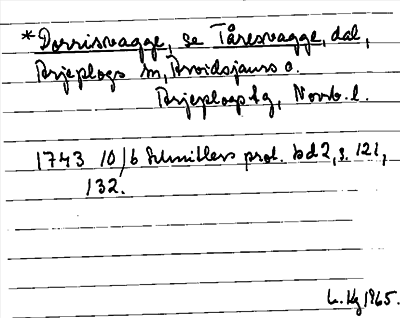 *Dorrisvagge, se Tåresvagge, dal,
Arjeplogs sn, Avvidsjaurs o.
Arjeplogs tg, Norrb. l.
1743 10/6 Schnitlers prot. bd 2, s. 121,
132.
L. Hg 1965.